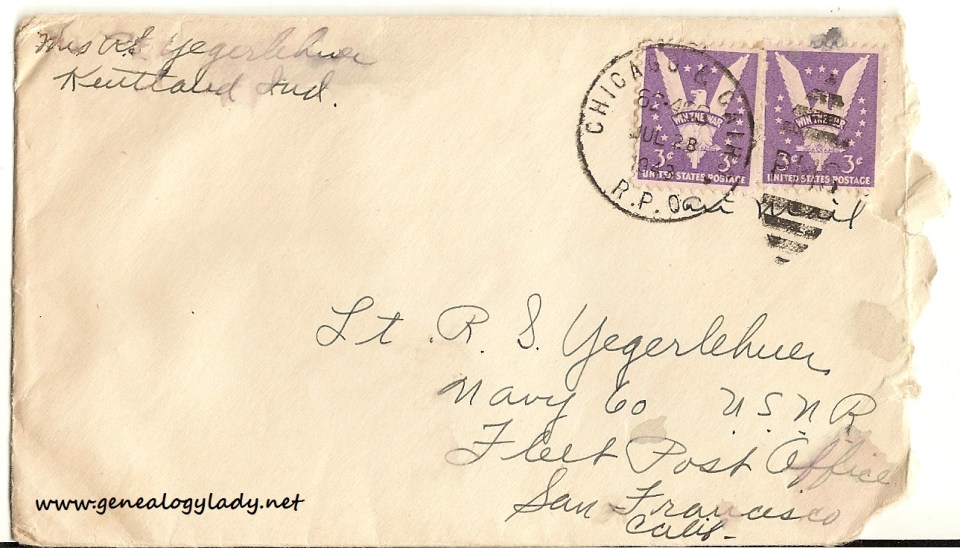 Mrs R.S. Yegerlehner
Kentland Ind.
CHICAGO & CALH
JUL 28
1943
R.P.O.
WIN THE WAR
3¢ 3¢
UNITED STATES POSTAGE
WIN THE WAR
3¢ 3¢
UNITED STATES POSTAGE
air mail
Lt. R. S. Yegerlehner
Navy 60 U.S.N.R
Fleet Post Office
San Francisco
Calif.
www.genealogylady.net